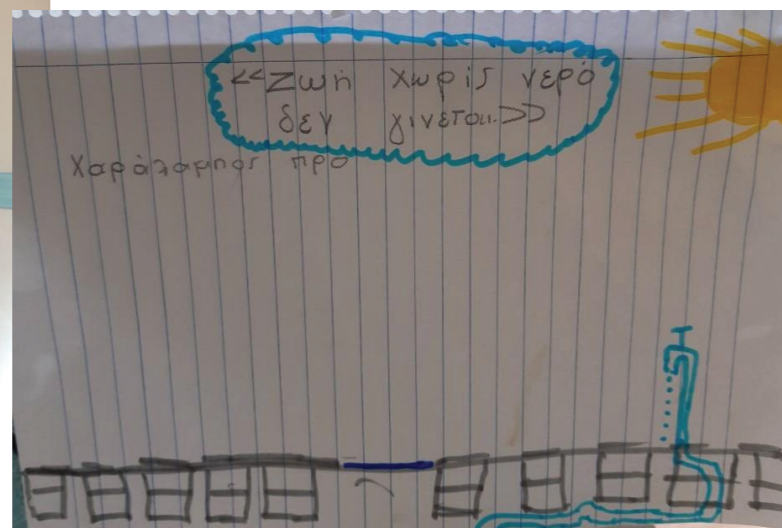 <<Ζωή χωρίς νερό
δεν γίνεται.>>
Χαράλαμπος προ